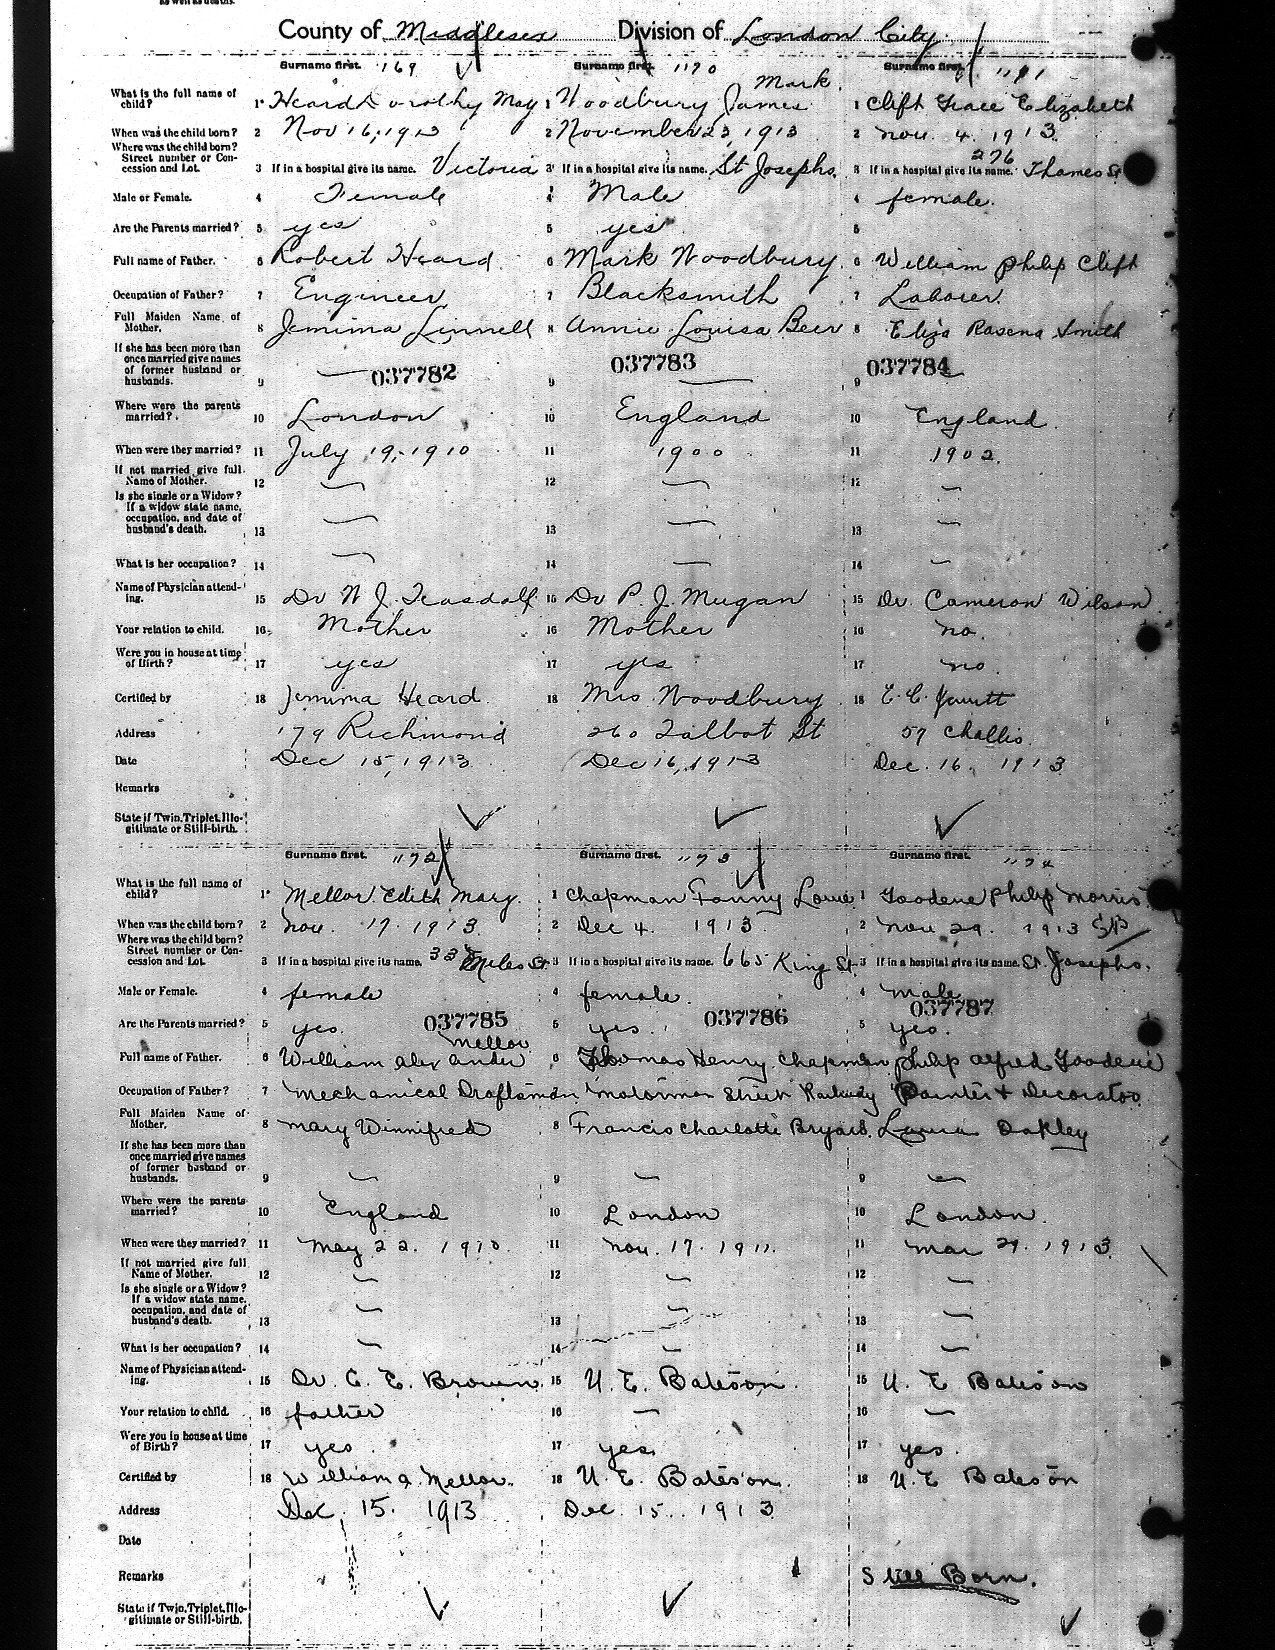 as well as deaths.
County of Middlesex Division of London City.
Surname first. 169 Surname first. 1170 Surname first. 1171
What is the full name of child? 1 Heard Dorothy May 1 Woodbury James Mark 1 Clift Grace Elizabeth
When was the child born? 2 Nov 16, 1913 2 November 23, 1913 2 Nov. 4. 1913
Where was the child born? Street number or Concession and Lot. 3 If in a hospital give its name. Victoria 3 If in a hospital give its name. St Josephs. 3 If in a hospital give its name. 276 Thames St
Male or Female. 4 Female 4 Male 4 female.
Are the Parents married? 5 yes 5 yes 5
Full name of Father. 6 Robert Heard 6 Mark Woodbury 6 William Philip Clift
Occupation of Father? 7 Engineer 7 Blacksmith 7 Laborer.
Full Maiden Name of Mother. 8 Jemima Linnell 8 Annie Louisa Beer 8 Eliza Rasena Smith
If she has been more than once married give names of former husband or husbands. 9 — 037782 9 — 037783 9 — 037784
Where were the parents married? 10 London 10 England 10 England.
When were they married? 11 July 19, 1910 11 1900 11 1902.
If not married give full Name of Mother. 12 — 12 — 12 —
Is she single or a Widow? If a widow state name, occupation, and date of husband's death. 13 — 13 — 13 —
What is her occupation? 14 — 14 — 14 —
Name of Physician attending. 15 Dr W. J. Teasdall 15 Dr P. J. Mugan 15 Dr. Cameron Wilson
Your relation to child. 16 Mother 16 Mother 16 no.
Were you in house at time of Birth? 17 yes 17 yes 17 no
Certified by 18 Jemima Heard 18 Mrs Woodbury 18 E. C. Jewitt
Address 179 Richmond 260 Talbot St 57 Challis.
Date Dec 15, 1913 Dec 16, 1913 Dec. 16. 1913
Remarks
State if Twin, Triplet, Illegitimate or Still-birth.
Surname first. 1172 Surname first. 1173 Surname first. 1174
What is the full name of child? 1 Mellor Edith Mary. 1 Chapman Fanny Louie 1 Goodene Philip Morris
When was the child born? 2 Nov. 17. 1913. 2 Dec 4. 1913. 2 Nov 29. 1913 SB
Where was the child born? Street number or Concession and Lot. 3 If in a hospital give its name. Miles St. 3 If in a hospital give its name. 665 King St. 3 If in a hospital give its name. St. Josephs.
Male or Female. 4 female 4 female. 4 male
Are the Parents married? 5 yes. 037785 5 yes. 037786 5 yes. 037787
Full name of Father. 6 William Alexander Mellor 6 Thomas Henry Chapman 6 Philip Alfred Goodene
Occupation of Father? 7 Mechanical Draftsman 7 Motorman Street Railway 7 Painter & Decorator
Full Maiden Name of Mother. 8 Mary Winnifred 8 Francis Charlotte Bryard. 8 Laura Oakley
If she has been more than once married give names of former husband or husbands. 9 — 9 — 9 —
Where were the parents married? 10 England 10 London 10 London.
When were they married? 11 May 22. 1910. 11 Nov. 17. 1911. 11 Mar 29. 1913.
If not married give full Name of Mother. 12 — 12 — 12 —
Is she single or a Widow? If a widow state name, occupation, and date of husband's death. 13 — 13 — 13 —
What is her occupation? 14 — 14 — 14 —
Name of Physician attending. 15 Dr. C. E. Brown. 15 U. E. Bateson. 15 U. E Bateson
Your relation to child. 16 father 16 — 16 —
Were you in house at time of Birth? 17 yes. 17 yes. 17 yes.
Certified by 18 William A. Mellor. 18 U. E. Bateson. 18 U. E Bateson
Address Dec. 15. 1913 Dec. 15. 1913
Date
Remarks Still Born.
State if Twin, Triplet, Illegitimate or Still-birth.